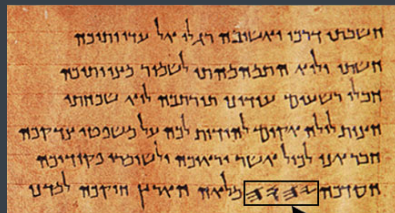 חשבתי דרכי ואשובה רגלי אל עדוותיכה
חשתי ולוא התמהמהתי לשמור מצוותיכה
חבלי רשעים תורתכה לוא שכחתי
חצות לילה להודות לכה על משפטי צדקכה
חבר אני לכול אשר יראוכה ולשומרי פקודיכה
חסדכה 𐤉𐤄𐤅𐤄 מלאה הארץ חוקיכה למדני